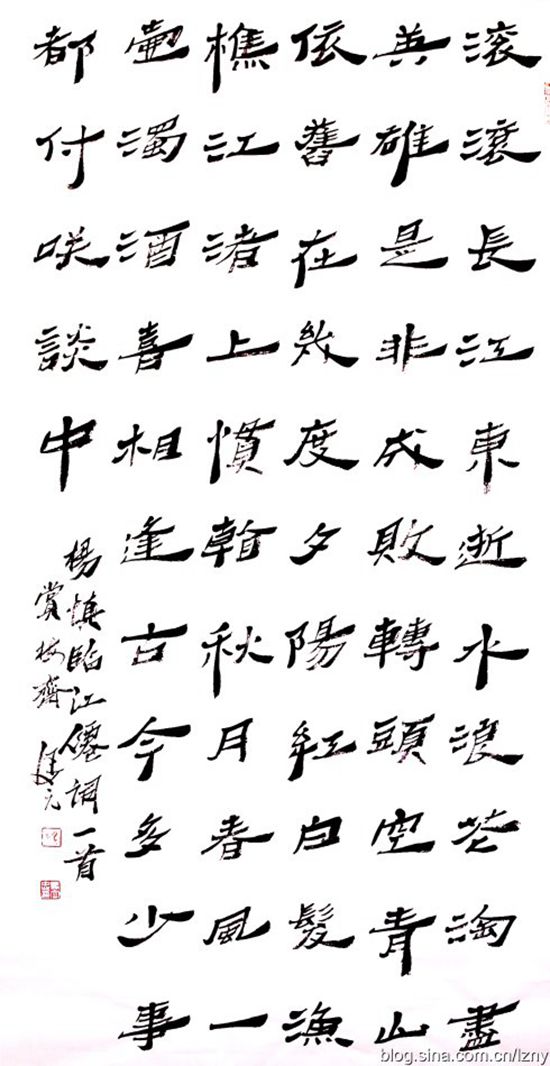 滚滚長江東逝水浪花淘盡
英雄是非成敗轉頭空青山
依舊在幾度夕陽紅白髮漁
樵江渚上慣看秋月春風一
壺濁酒喜相逢古今多少事
都付咲談中
楊慎臨江僊詞一首
賞梅齋
blog.sina.com.cn/lzny